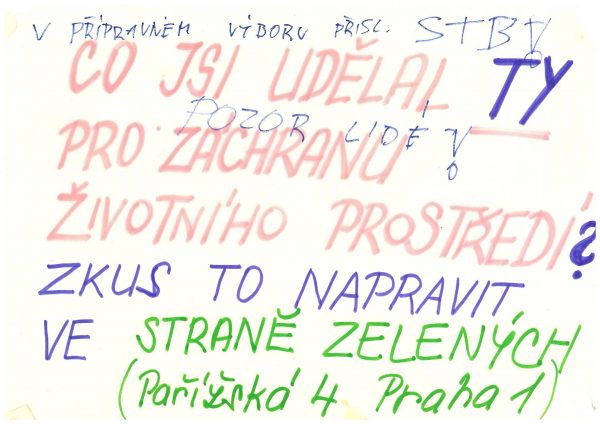 V PŘÍPRAVNÉM VÝBORU PŘÍSL. STBV!
CO JSI UDĚLAL TY
POZOR LIDÉ!
PRO ZÁCHRANU
ŽIVOTNÍHO PROSTŘEDÍ?
ZKUS TO NAPRAVIT
VE STRANĚ ZELENÝCH
(Pařížská 4 Praha 1)